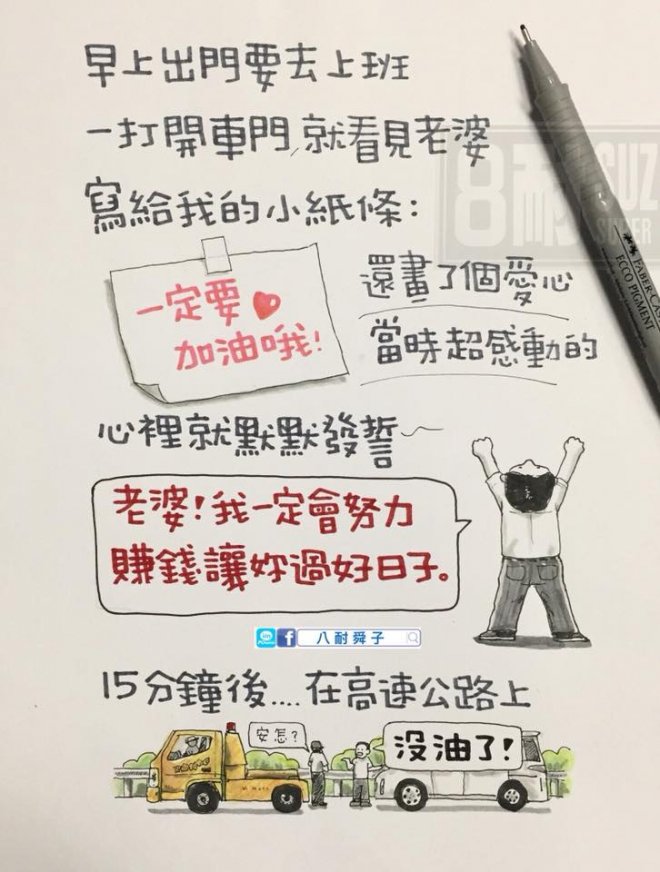 早上出門要去上班
一打開車門,就看見老婆
寫給我的小紙條:
一定要
加油哦!
還畫了個愛心
當時超感動的
心裡就默默發誓~
老婆!我一定會努力
賺錢讓妳過好日子。
八耐舜子
15分鐘後....在高速公路上
安怎?
沒油了!
FABER-CASTELL
ECCO PIGMENT
8耐
SUZ
SUPER